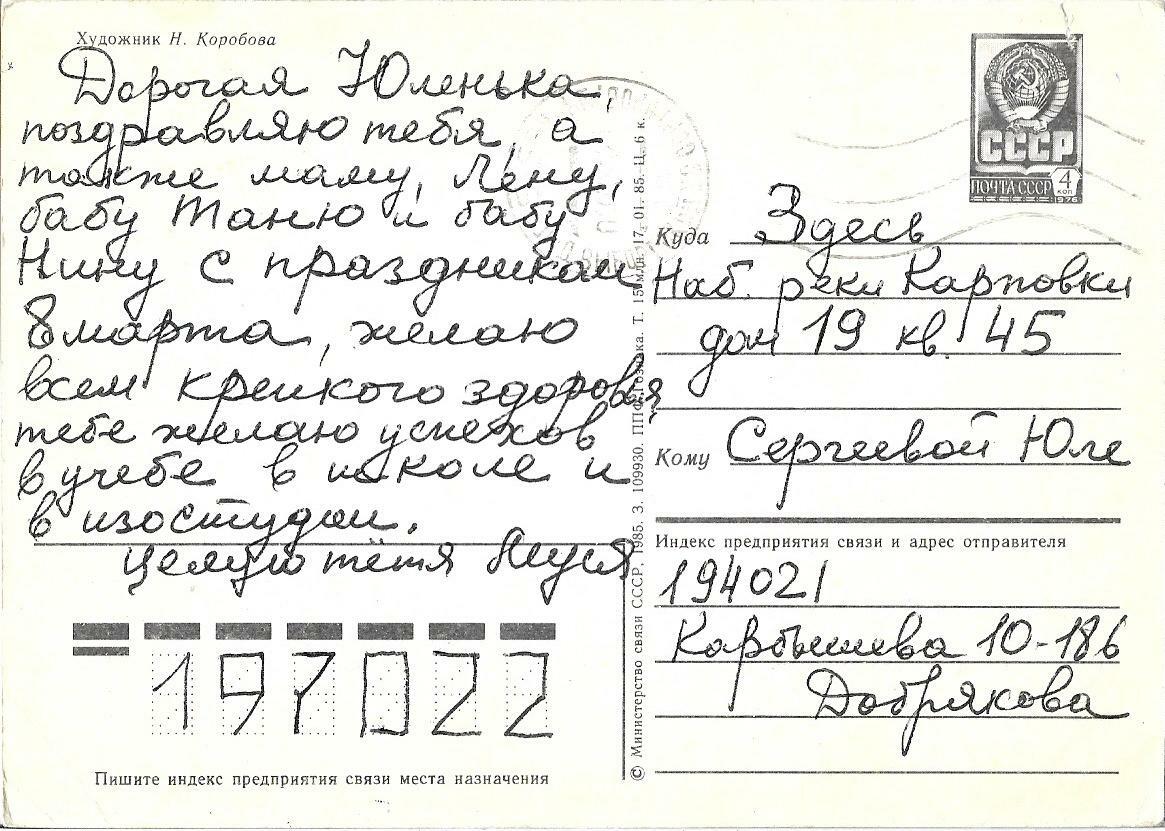 Художник Н. Коробова
Дорогая Юленька,
поздравляю тебя, а
также маму, Лену,
бабу Таню и бабу
Нину с праздником
8 марта, желаю
всем крепкого здоровья,
тебе желаю успехов
в учебе в школе и
в изостудии.
Целую тётя Муся
197022
Пишите индекс предприятия связи места назначения
© Министерство связи СССР, 1985. З. 109930. ППФ Гознака. Т. 15 млн. 17. 01. 85. Ц. 6 к.
СССР
ПОЧТА СССР 4 коп
1976
Куда Здесь
Наб. реки Карповки
дом 19 кв. 45
Кому Сергеевой Юле
Индекс предприятия связи и адрес отправителя
194021
Карбышева 10-186
Добрякова